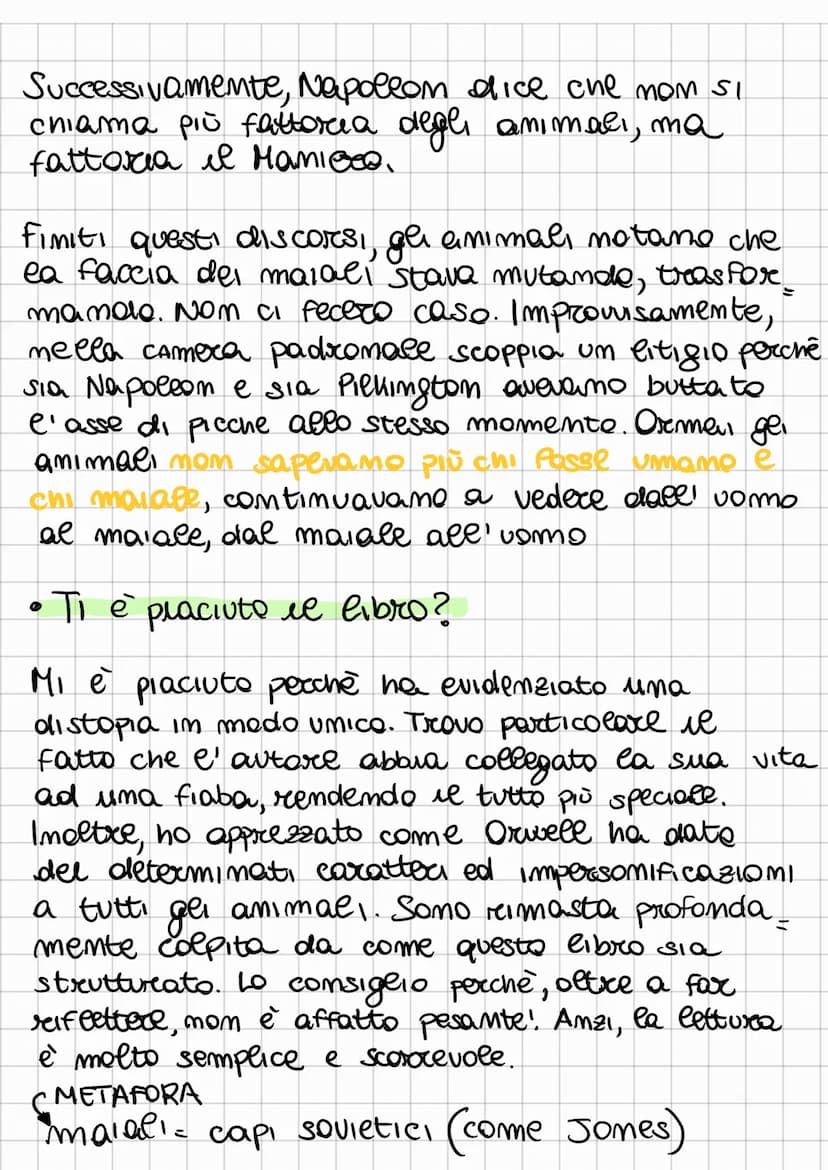 Successivamente, Napoleon dice che non si
chiama più fattoria degli animali, ma
fattoria il Maniero.
Finiti questi discorsi, gli animali notano che
la faccia dei maiali stava mutando, trasfor=
mando. Non ci fecero caso. Improvvisamente,
nella camera padronale scoppia un litigio perchè
sia Napoleon e sia Pilkington avevano buttato
l'asse di picche allo stesso momento. Ormai gli
animali non sapevano più chi fosse umano e
chi maiale, continuavano a vedere dall'uomo
al maiale, dal maiale all'uomo
• Ti è piaciuto il libro?
Mi è piaciuto perchè ha evidenziato una
distopia in modo unico. Trovo particolare il
fatto che l'autore abbia collegato la sua vita
ad una fiaba, rendendo il tutto più speciale.
Inoltre, ho apprezzato come Orwell ha dato
dei determinati caratteri ed impersonificazioni
a tutti gli animali. Sono rimasta profonda=
mente colpita da come questo libro sia
strutturato. Lo consiglio perchè, oltre a far
riflettere, non è affatto pesante! Anzi, la lettura
è molto semplice e scorrevole.
METAFORA
maiali = capi sovietici (come Jones)